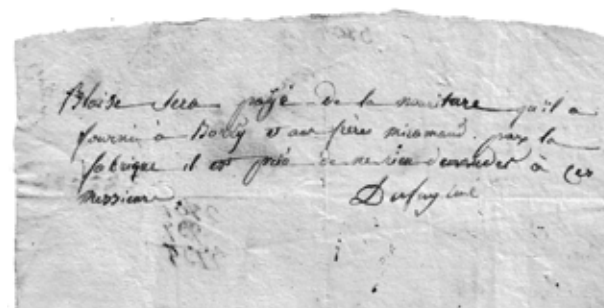 Blaise sera payé de la nouriture qu'il a
fournie à Borely et aux frères miramand. par la
fabrique il est prié de ne rien demander à ces
messieurs.